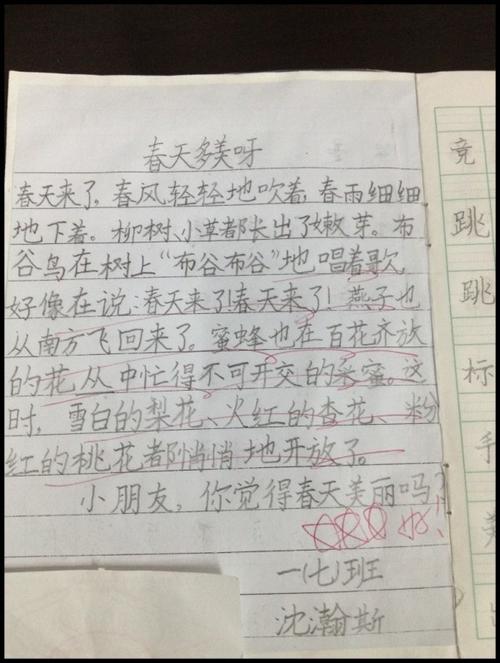 春天多美呀
春天来了。春风轻轻地吹着,春雨细细
地下着。柳树、小草都长出了嫩芽。布
谷鸟在树上“布谷布谷”地唱着歌
好像在说:春天来了!春天来了!燕子也
从南方飞回来了。蜜蜂也在百花齐放
的花丛中忙得不可开交的采蜜。这
时,雪白的梨花、火红的杏花、粉
红的桃花都悄悄地开放了。
小朋友,你觉得春天美丽吗?
好!
一(七)班
沈瀚斯
竞
跳
跳
标
手